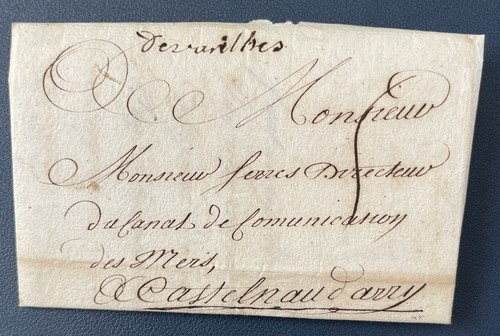 Devarilhes
A Monsieur
Monsieur Serres Directeur
du Canal de Comunication
des Mers,
A Castelnaudarry